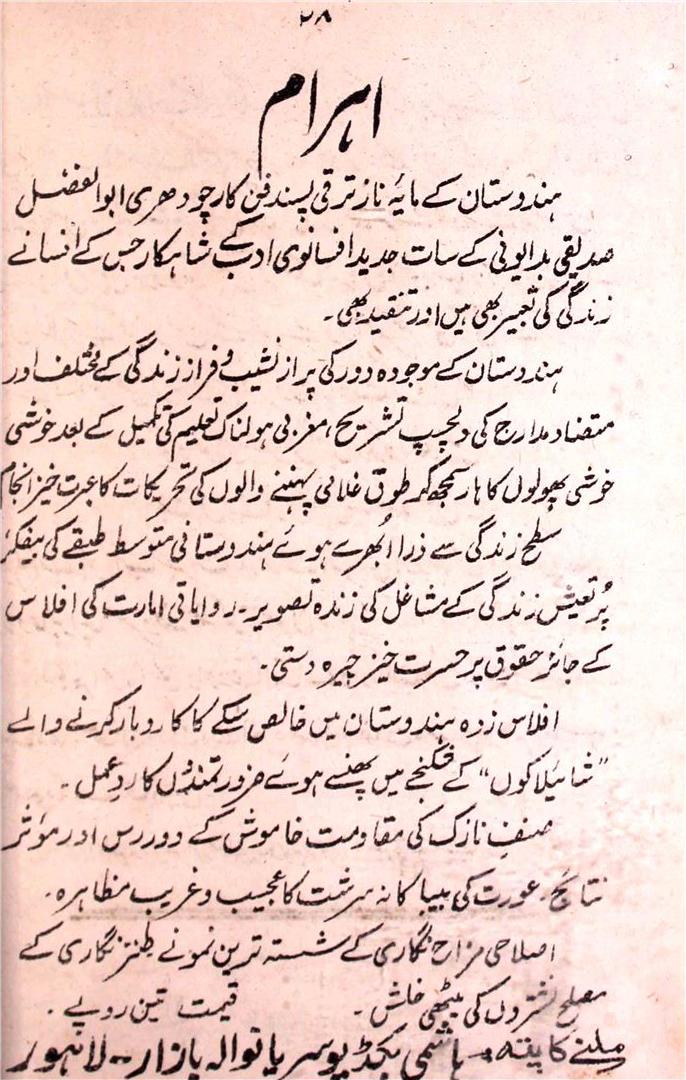 ۲۸
اہرام
ہندوستان کے مایۂ ناز ترقی پسند فن کار چودھری ابوالفضل
صدیقی بدایونی کے سات جدید افسانوی ادب کے شاہکار جس کے افسانے
زندگی کی تعبیر بھی ہیں اور تنقید بھی۔
ہندوستان کے موجودہ دور کی پر از نشیب و فراز زندگی کے مختلف اور
متضاد مدارج کی دلچسپ تشریح، مغربی ہولناک تعلیم کی تکمیل کے بعد خوشی
خوشی پھولوں کا ہار سمجھ کر طوق غلامی پہننے والوں کی تحریکات کا عبرت خیز انجام
سطح زندگی سے ذرا ابھرے ہوئے ہندوستانی متوسط طبقے کی بیفکر
پُر تعیش زندگی کے مشاغل کی زندہ تصویر۔ روایاتی امارت کی افلاس
کے جائز حقوق پر حسرت خیز چیرہ دستی۔
افلاس زدہ ہندوستان میں خالص سکے کا کاروبار کرنے والے
"شائیلاکوں" کے شکنجے میں پھنسے ہوئے ضرورتمندوں کا ردِ عمل۔
صنفِ نازک کی مقاومت خاموش کے دور رس اور مؤثر
نتائج۔ عورت کی بیباکانہ سرشت کا عجیب و غریب مظاہرہ۔
اصلاحی مزاح نگاری کے شستہ ترین نمونے طنز نگاری کے
مصلح نشتروں کی میٹھی خلش۔ قیمت تین روپے۔
ملنے کا پتہ:۔ ہاشمی بکڈپو سریانوالہ بازار۔ لاہور